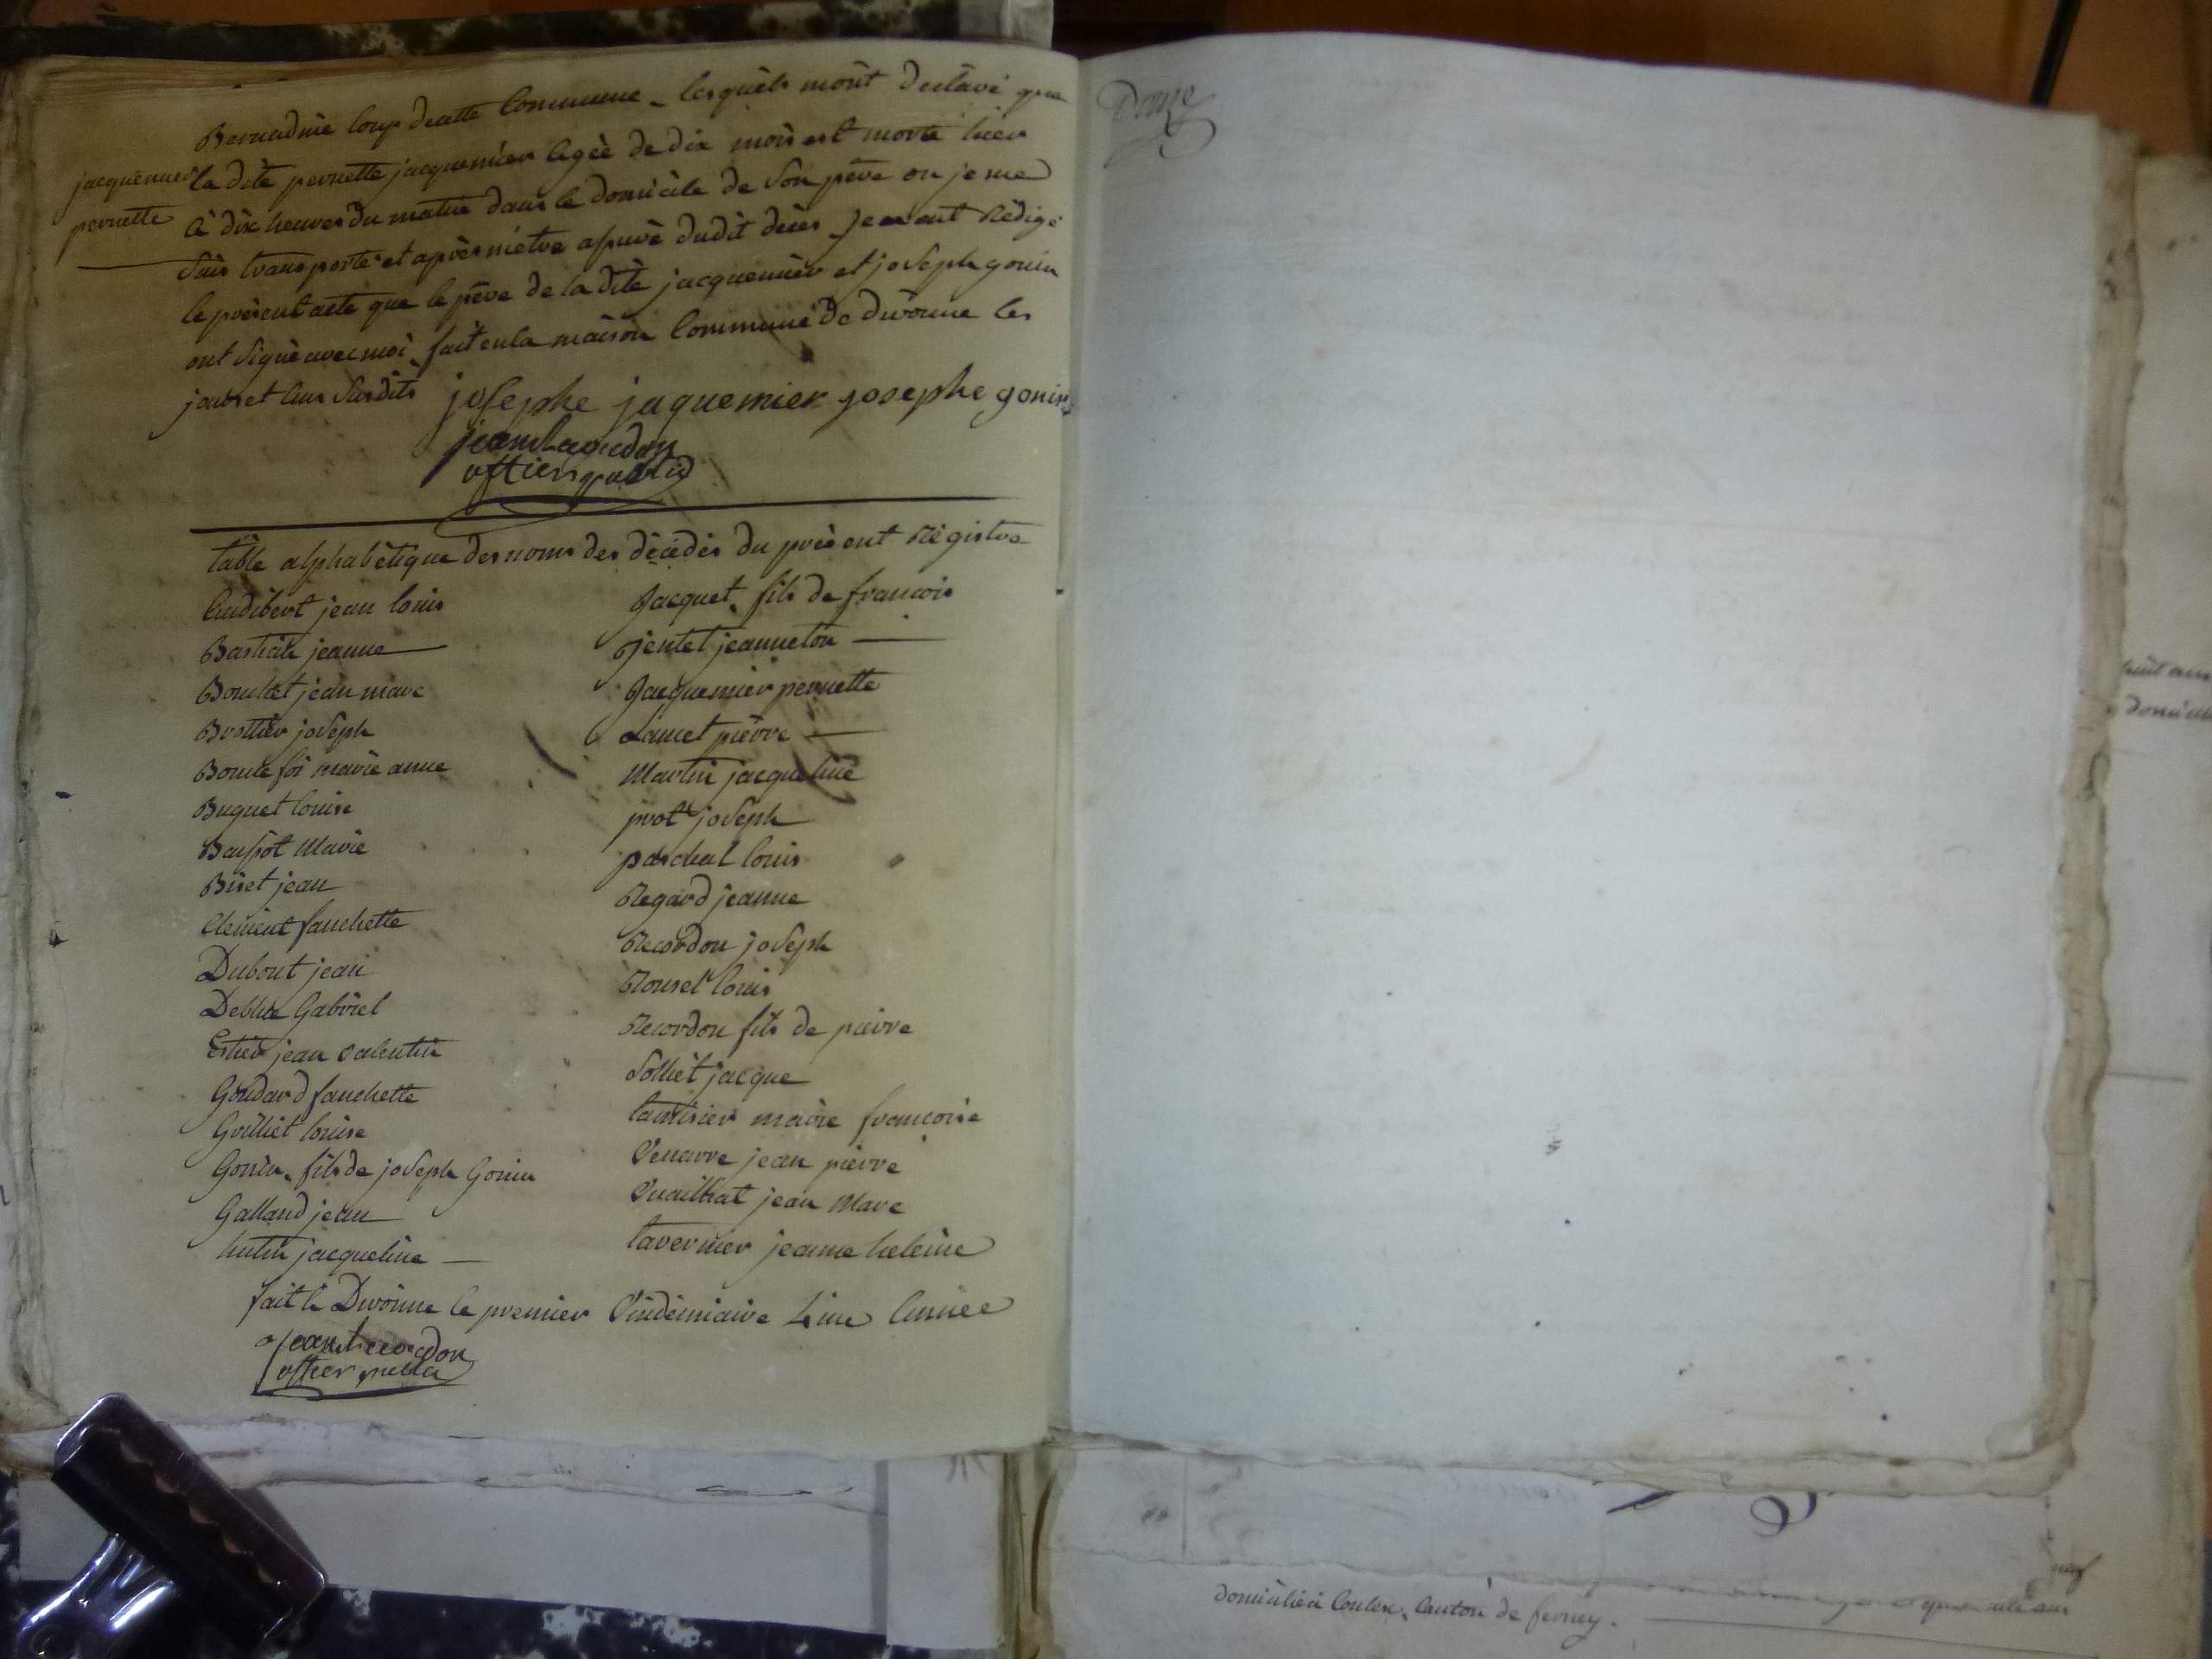 Bernadine loup de cette Commune _ lesquels m'ont déclaré que
la dite pernette jacquemier agée de dix mois est morte hier
jacquemier
pernette
à dix heures du matin dans le domicile de son père ou je me
suis transporté et après m'etre assuré dudit décès je en ont Rédigé
le présent acte que le père de la dite jacquemier et joseph gonin
ont signé avec moi, fait en la maison Commune de divonne les
jour et an susdits
josephe jaquemier josephe gonin
jean Recordon
officier public
table alphabètique des noms des décedés du présent Régistre
Audibert jean louis
Bastian jeanne
Bouchet jean marc
Brottier joseph
Bonnefoi marie anne
Buquet louise
Baussot Marie
Biset jean
Clement fanchette
Dubout jean
Deblue Gabriel
Estier jean valentin
Goudard fanchette
Grilliet louise
Gonin, fils de joseph Gonin
Galland jean
hutin jacqueline
Jacquet, fils de francois
jentet jeanneton
Jacquemier pernette
Lancet pierre
Martin jacqueline
prot joseph
paschal louis
Regard jeanne
Recordon joseph
Rouset louis
Recordon fils de pierre
Solliet jacque
tantisier marie francoise
Venarre jean pierre
Vuailliat jean Marc
tavernier jeanne heleine
fait à Divonne le premier Vindémiaire 4me Année
jean Recordon
officier public
Douze
huit ans
domicilié à Coulex, Canton de ferney.